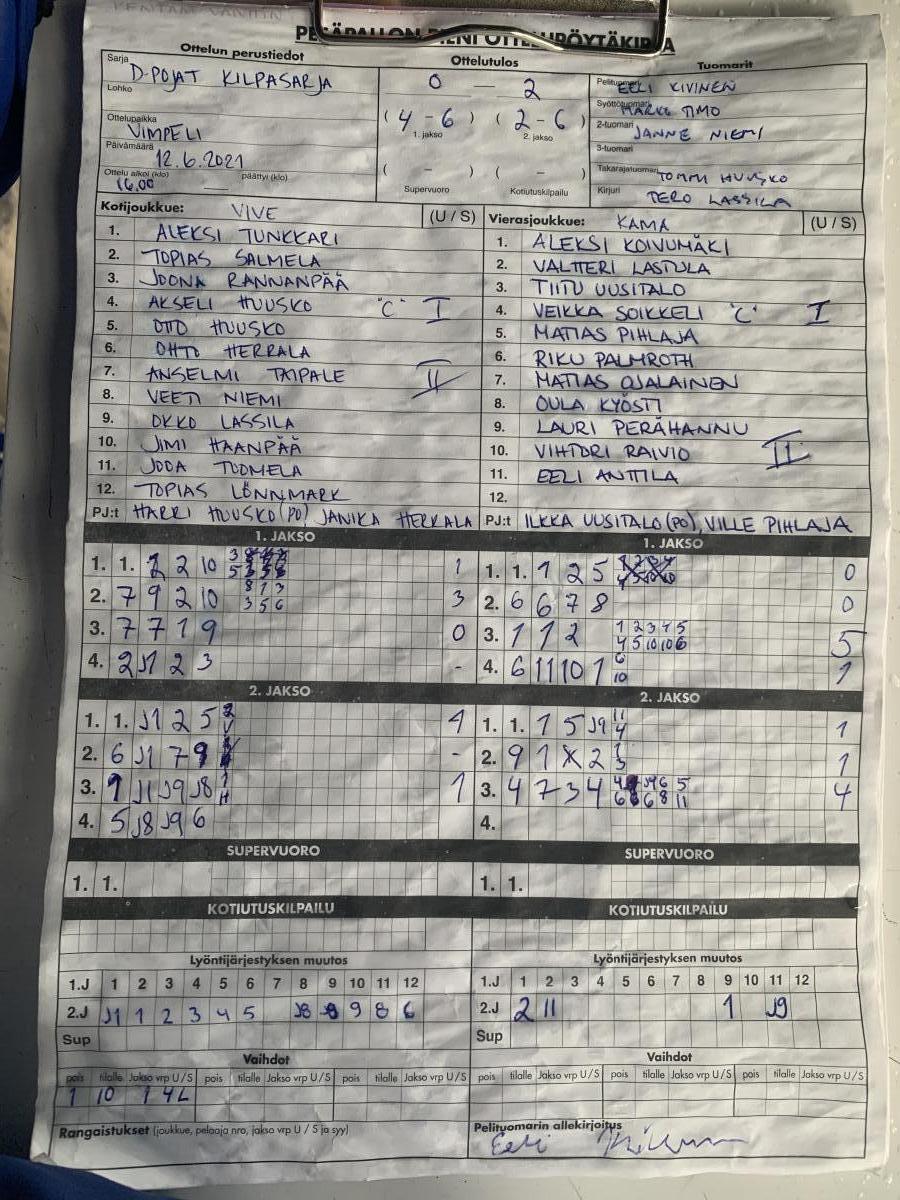 PESÄPALLON PIENI OTTELUPÖYTÄKIRJA
Ottelun perustiedot
Sarja D-POJAT KILPASARJA
Lohko
Ottelupaikka VIMPELI
Päivämäärä 12.6.2021
Ottelu alkoi (klo) 16.00 päättyi (klo)
Ottelutulos
0 — 2
(4 - 6) (2 - 6)
1. jakso 2. jakso
( - ) ( - )
Supervuoro Kotiutuskilpailu
Tuomarit
Pelituomari EELI KIVINEN
Syöttötuomari MARKO TIMO
2-tuomari JANNE NIEMI
3-tuomari
Takarajatuomari TOMMI HUUSKO
Kirjuri TERO LASSILA
Kotijoukkue: VIVE (U / S)
1. ALEKSI TUNKKARI
2. TOPIAS SALMELA
3. JOONA RANNANPÄÄ
4. AKSELI HUUSKO "C" I
5. OTTO HUUSKO
6. OHTO HERRALA
7. ANSELMI TAIPALE II
8. VEETI NIEMI
9. OKKO LASSILA
10. JIMI HAANPÄÄ
11. JOOA TUOMELA
12. TOPIAS LÖNNMARK
PJ:t HARRI HUUSKO (PO) JANIKA HERRALA
Vierasjoukkue: KAMA (U / S)
1. ALEKSI KOIVUMÄKI
2. VALTTERI LASTULA
3. TIITU UUSITALO
4. VEIKKA SOIKKELI "C" I
5. MATIAS PIHLAJA
6. RIKU PALMROTH
7. MATIAS OJALAINEN
8. OULA KYÖSTI
9. LAURI PERÄHANNU
10. VIHTORI RAIVIO II
11. EELI ANTTILA
12.
PJ:t ILKKA UUSITALO (PO), VILLE PIHLAJA
1. JAKSO
1. 1. 2 2 10 1
2. 7 9 2 10 8 1 3 3
3 5 6
3. 7 7 1 9 0
4. 2 J1 2 3 -
1. JAKSO
1. 1. 1 2 5 0
2. 6 6 7 8 0
3. 1 1 2 1 2 3 4 5 5
4 5 10 10 6
4. 6 11 10 1 6 1
10
2. JAKSO
1. 1. J1 2 5 1
2. 6 J1 7 9 -
3. 1 J1 J9 J8 1
4. 5 J8 J9 6
2. JAKSO
1. 1. 1 5 J9 11 1
4
2. 9 1 X 2 1
3. 4 7 3 4 4
4.
SUPERVUORO
1. 1.
SUPERVUORO
1. 1.
KOTIUTUSKILPAILU
KOTIUTUSKILPAILU
Lyöntijärjestyksen muutos
1.J 1 2 3 4 5 6 7 8 9 10 11 12
2.J J1 1 2 3 4 5 J8 9 8 6
Sup
Lyöntijärjestyksen muutos
1.J 1 2 3 4 5 6 7 8 9 10 11 12
2.J 2 11 1 J9
Sup
Vaihdot
pois tilalle Jakso vrp U / S pois tilalle Jakso vrp U / S pois tilalle Jakso vrp U / S
1 10 1 4L
Vaihdot
pois tilalle Jakso vrp U / S pois tilalle Jakso vrp U / S pois tilalle Jakso vrp U / S
Rangaistukset (joukkue, pelaaja nro, jakso vrp U / S ja syy)
Pelituomarin allekirjoitus
Eeli Kivinen